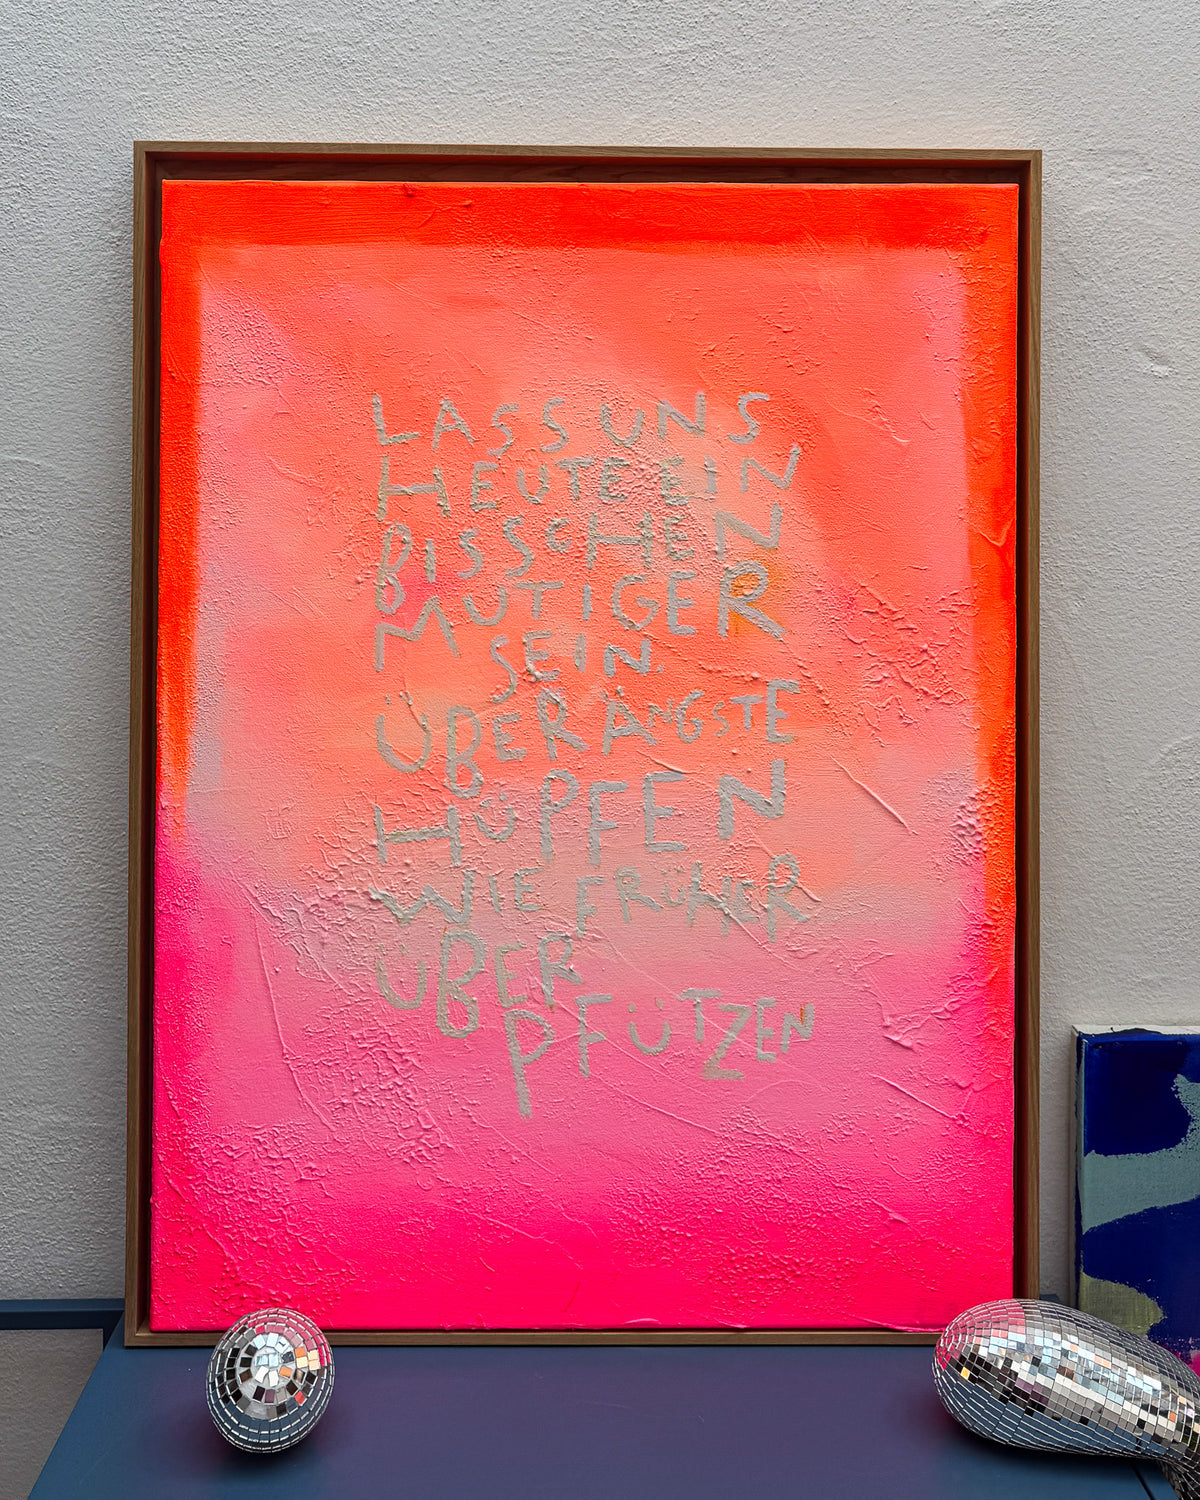 LASS UNS
HEUTE EIN
BISSCHEN
MUTIGER
SEIN.
ÜBER ÄNGSTE
HÜPFEN
WIE FRÜHER
ÜBER
PFÜTZEN